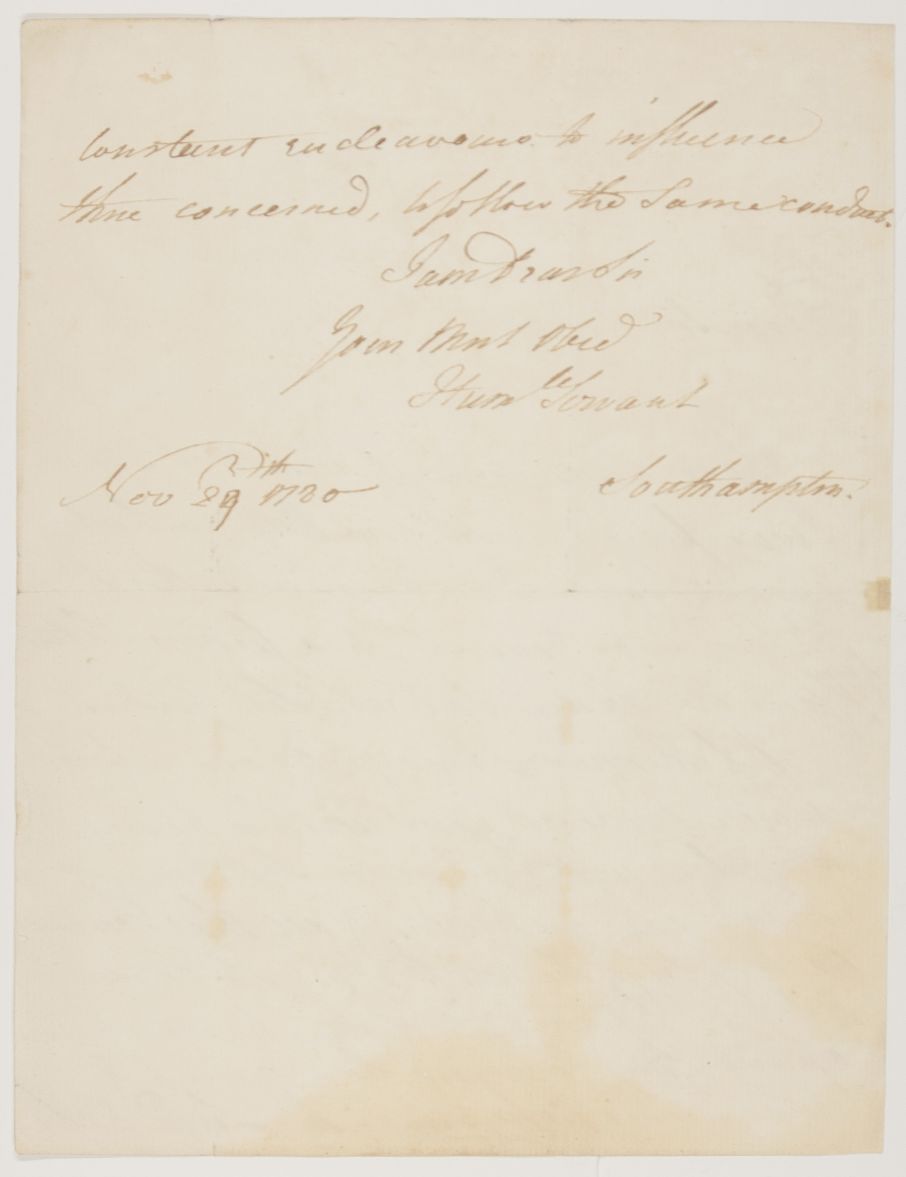 Constant endeavours to influence
those concerned, to follow the same conduct.
I am Dear Sir
Your Most Obed
Hum<sup>le</sup> Servant
Nov 29<sup>th</sup> 1780
Southampton.